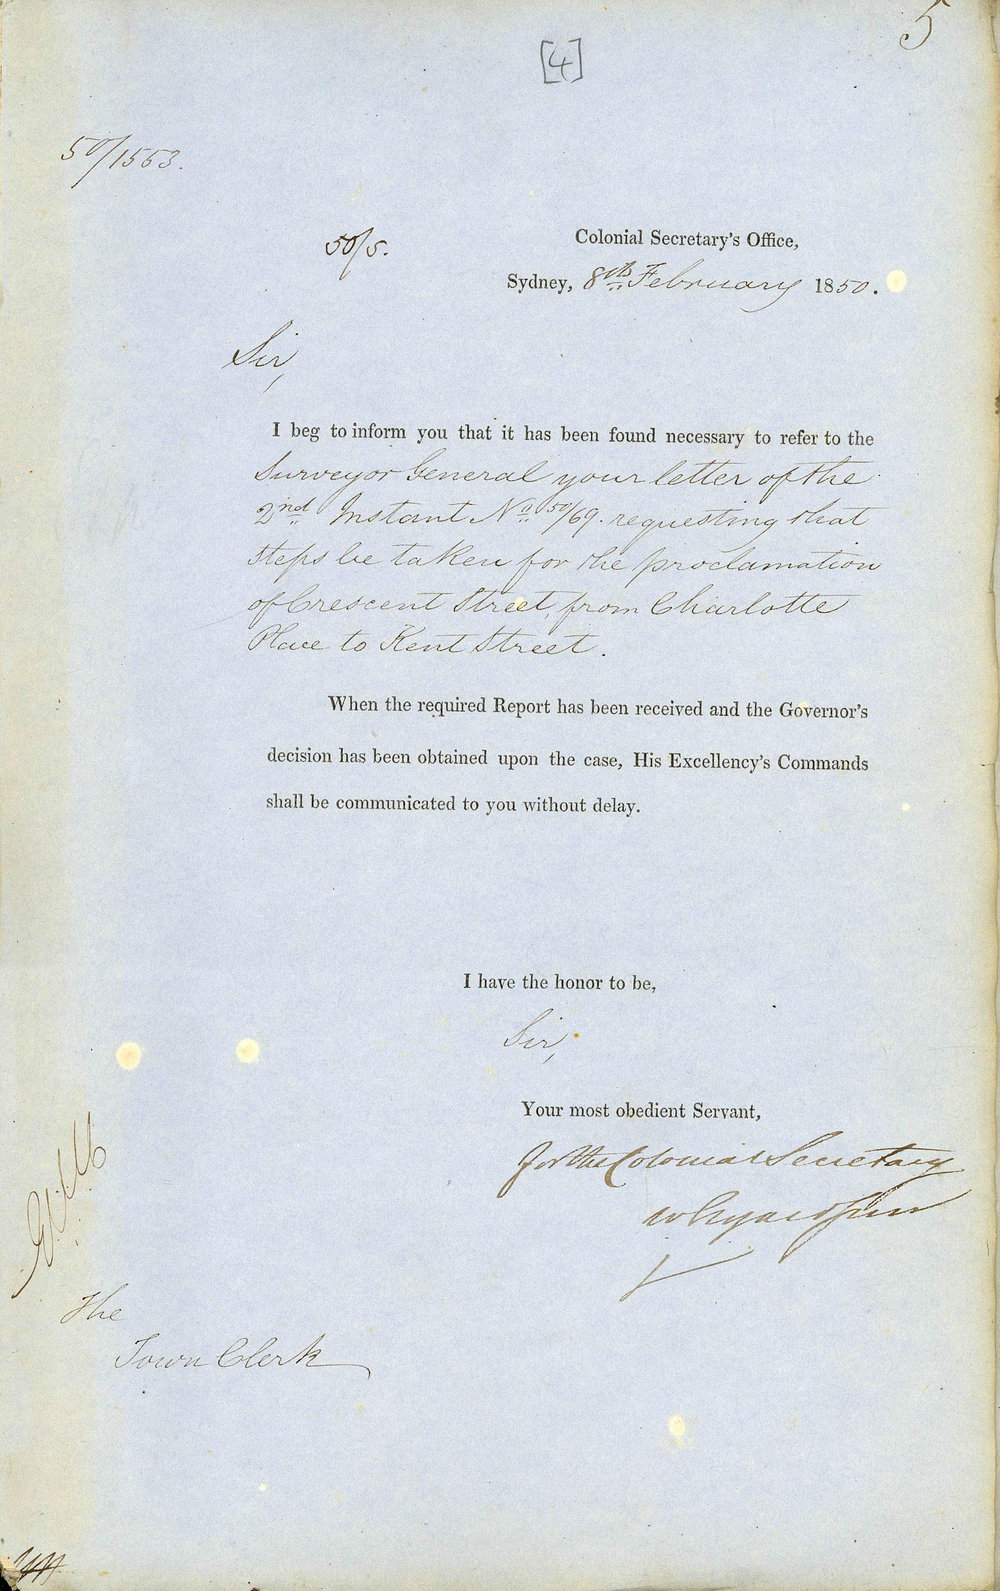 5
[4]
50/1553.
50/5.
Colonial Secretary's Office,
Sydney, 8th February 1850.
Sir,
I beg to inform you that it has been found necessary to refer to the
Surveyor General your letter of the
2nd Instant No 50/69. requesting that
steps be taken for the proclamation
of Crescent Street, from Charlotte
Place to Kent Street.
When the required Report has been received and the Governor's
decision has been obtained upon the case, His Excellency's Commands
shall be communicated to you without delay.
I have the honor to be,
Sir,
Your most obedient Servant,
for the Colonial Secretary
The
Town Clerk